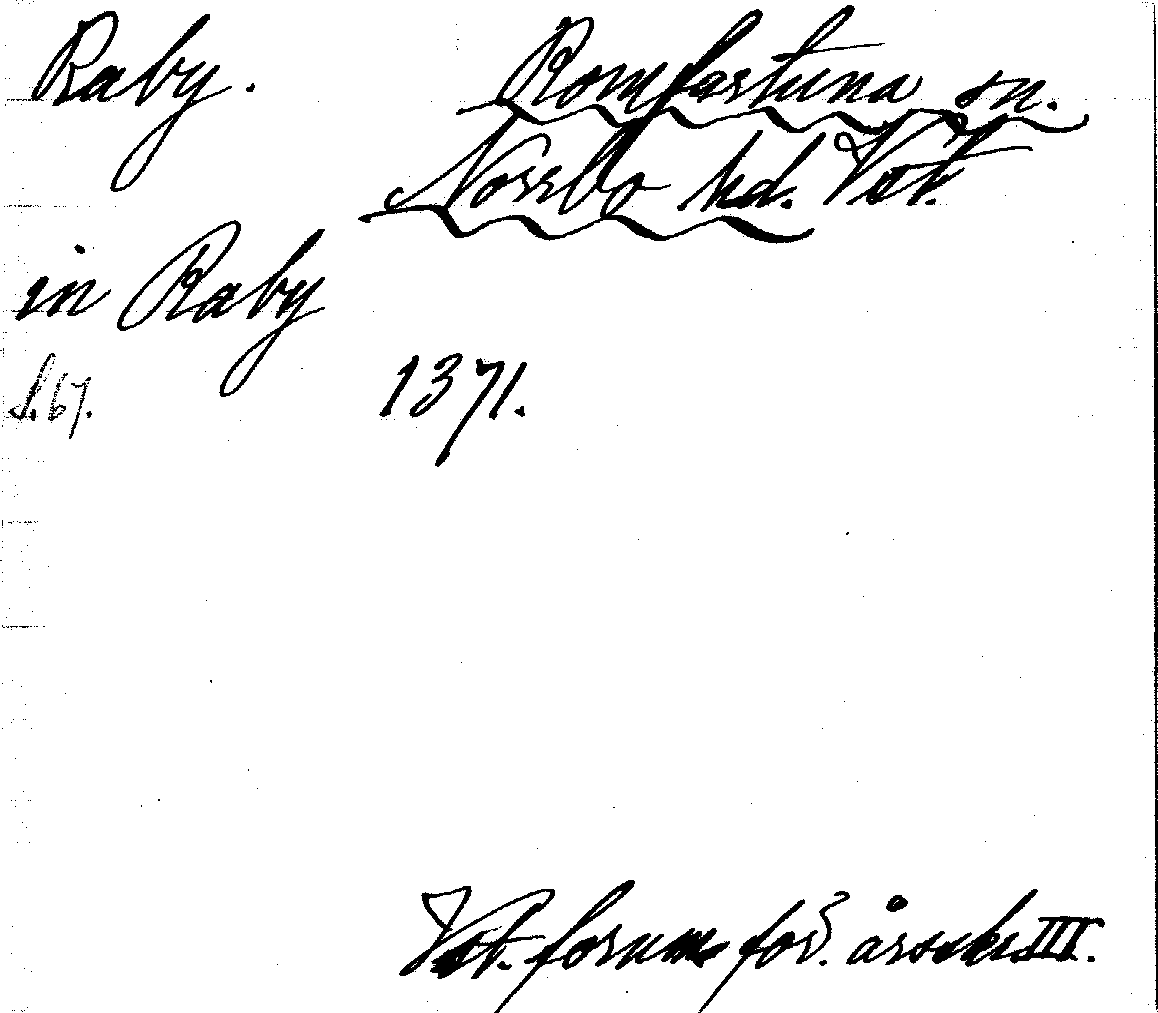 Raby. Romfartuna sn.
Norrbo hd. Vstm.
in Raby
s. 67. 1371.
Vst. fornm. för. årsskr. III.